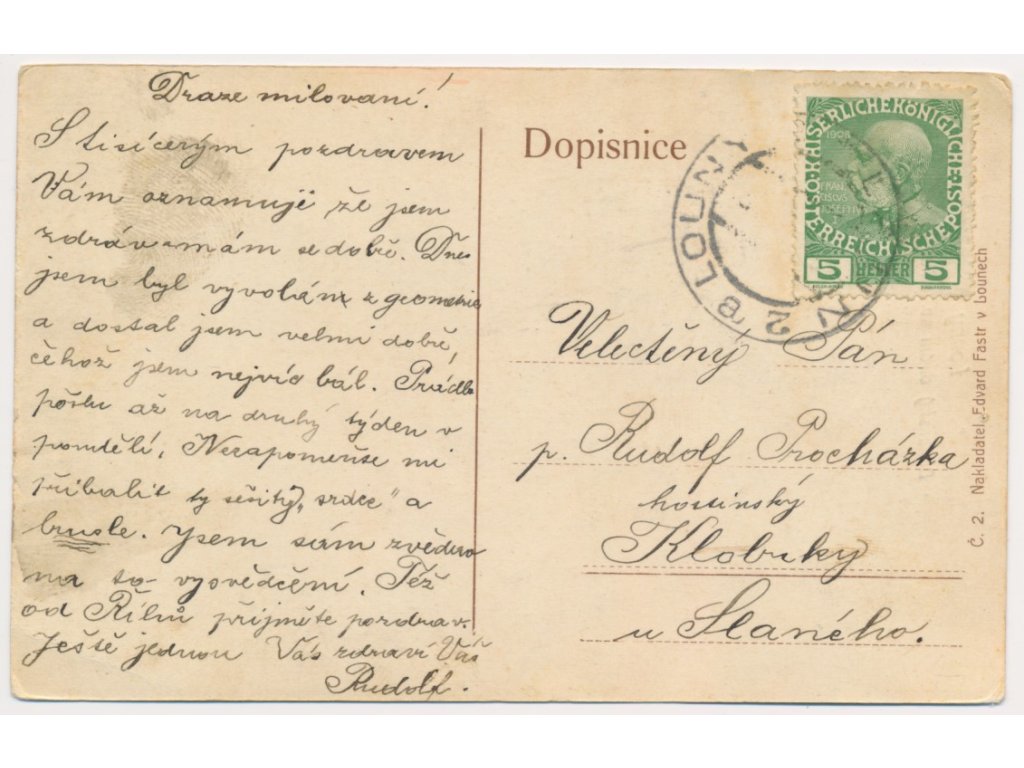 Draze milovaní!
S tisícerým pozdravem
Vám oznamuji že jsem
zdráv a mám se dobře. Dnes
jsem byl vyvolán z geometrie
a dostal jsem velmi dobře,
čehož jsem nejvíc bál. Prádlo
pošlu až na druhý týden v
pondělí. Nezapomeňte mi
přibalit ty sešity, "srdce" a
brusle. Jsem sám zvědav
na to vysvědčení. Též
od přijměte pozdrav.
Ještě jednou Vás zdraví Váš
Rudolf.
Dopisnice
LOUNY
2e
KAISERLICHE KÖNIGLICHE ÖSTERREICHISCHE POST
1908
FRANCISCVS IOSEPH I
5 HELLER 5
Velectěný Pán
p. Rudolf Procházka
hostinský
Klobuky
u Slaného.
Č. 2. Nakladatel Edvard Fastr v Lounech